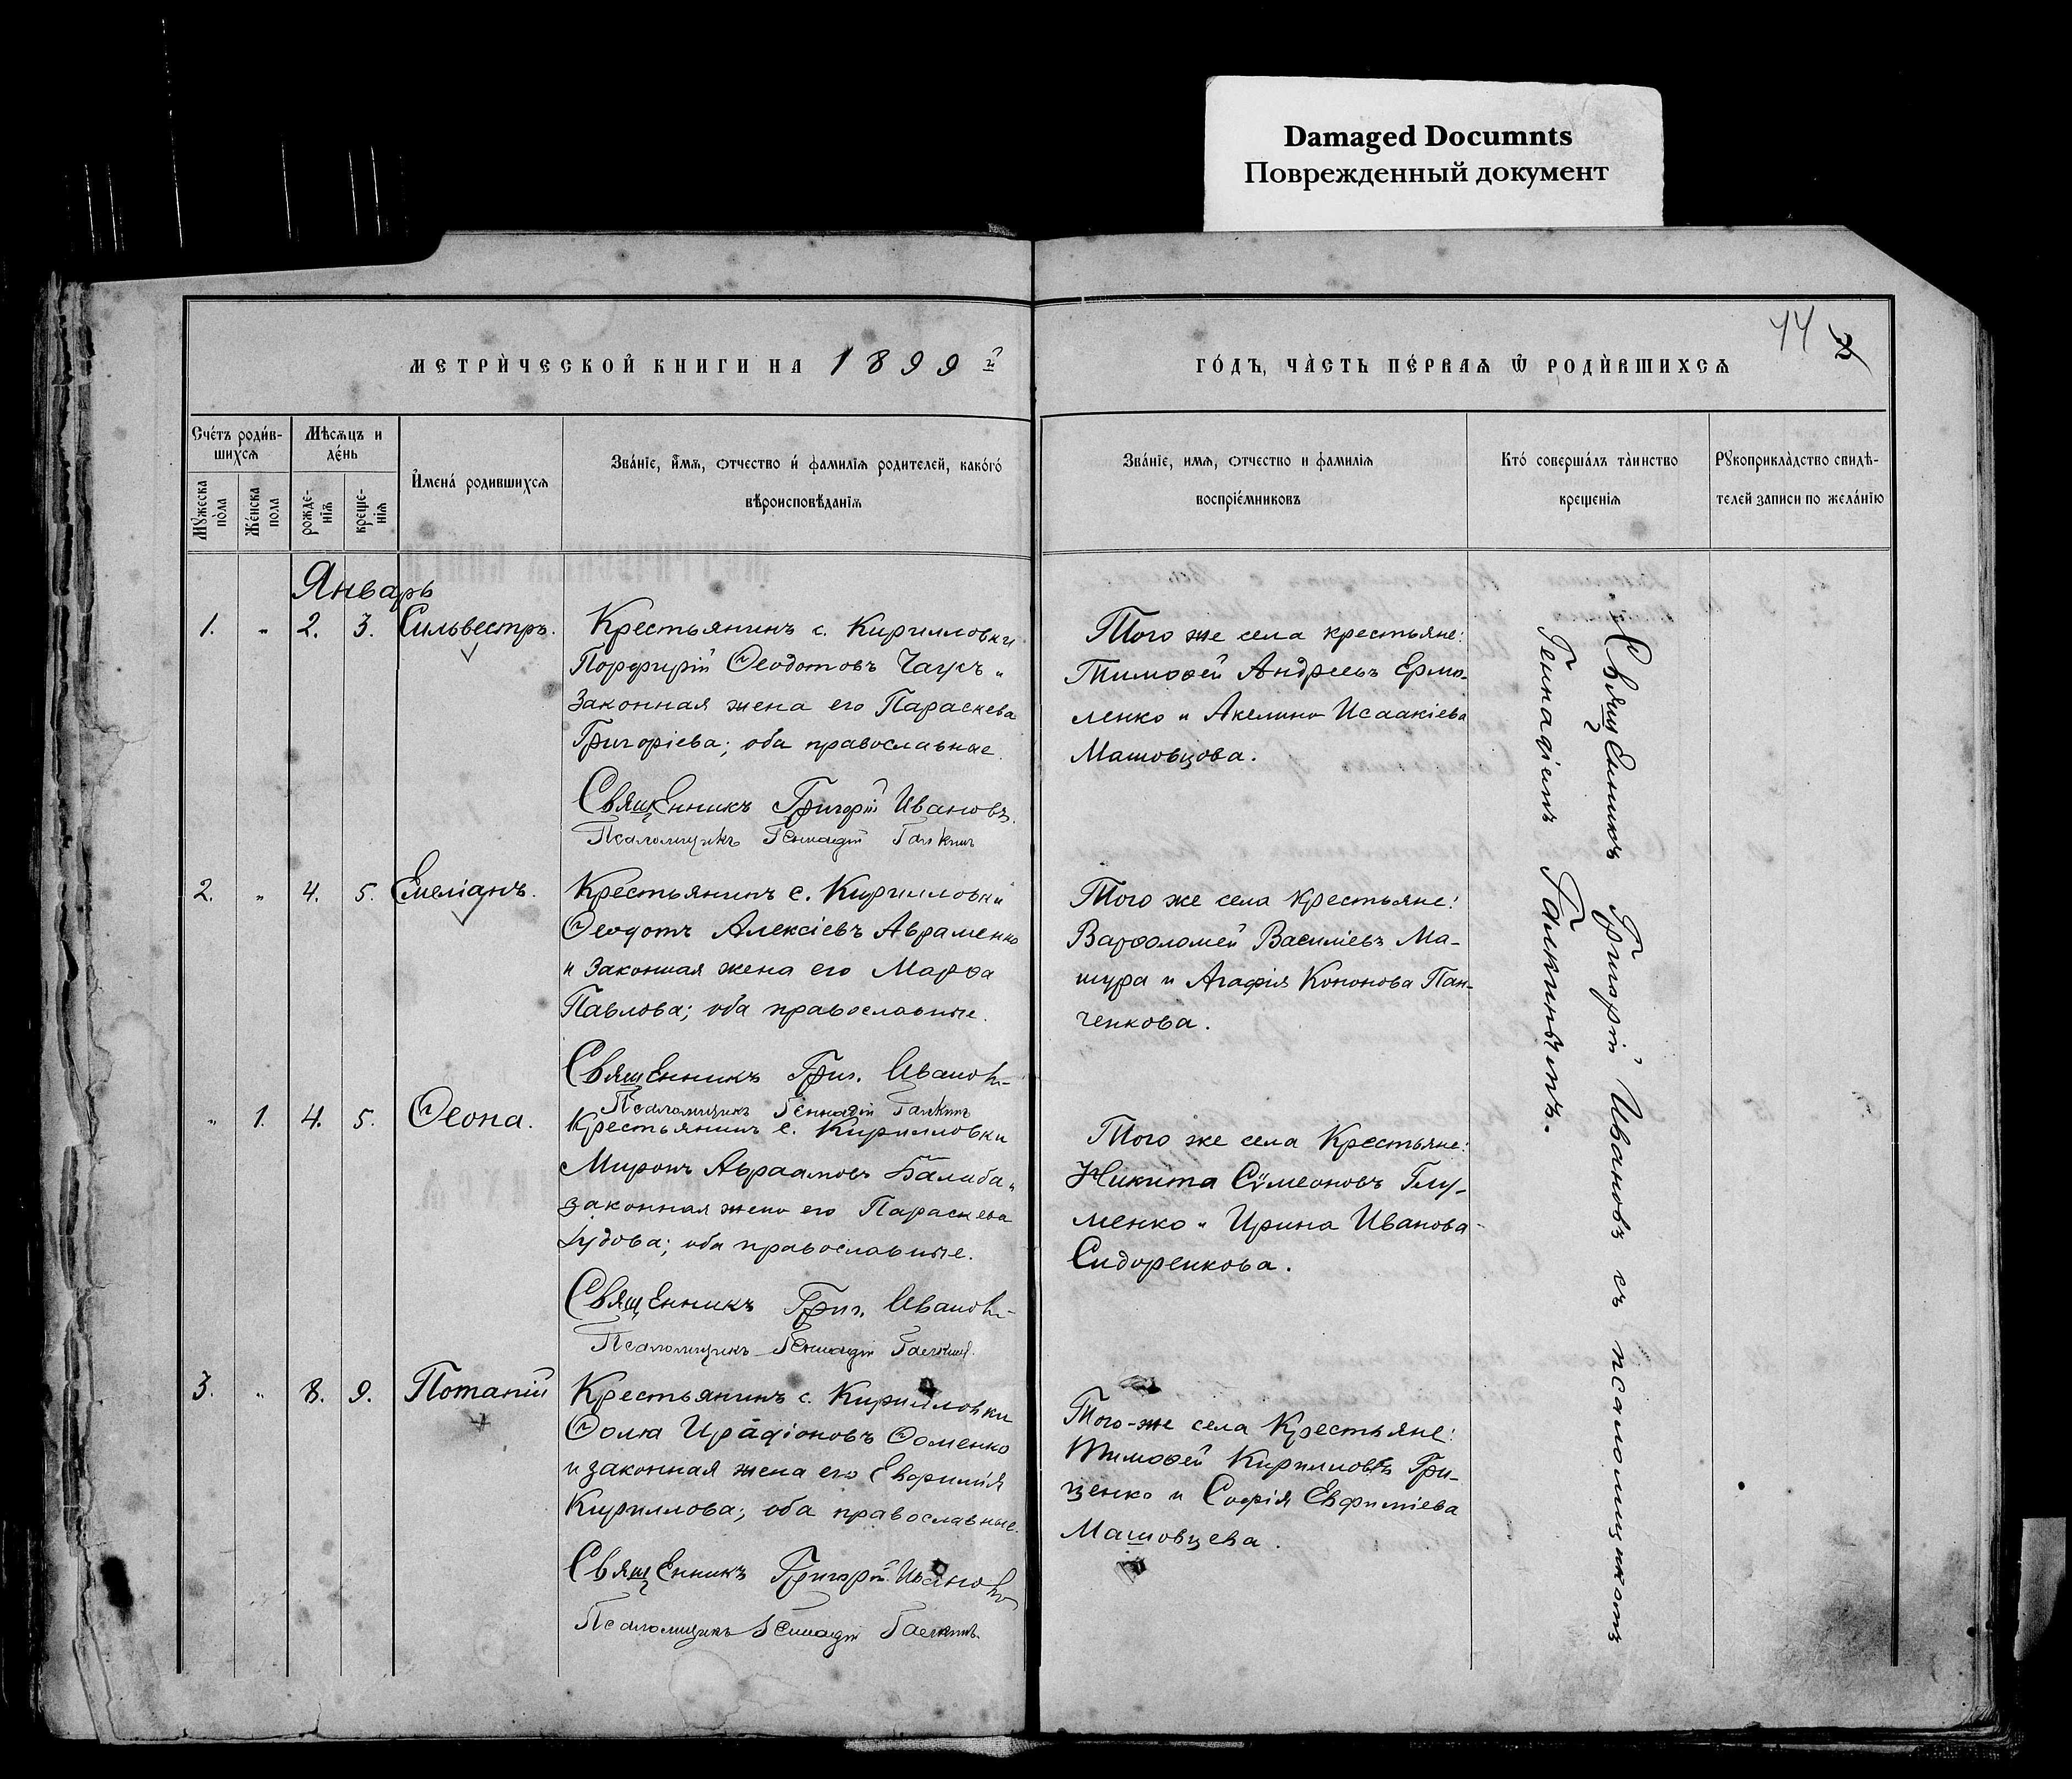 Damaged Documnts
Поврежденный документ
МЕТРИЧЕСКОЙ КНИГИ НА 1899й
ГОДЪ, ЧАСТЬ ПЕРВАЯ Ѿ РОДИВШИХСЯ
44 2
Счетъ родив-
шихся
Мѣсяцъ и
день
Мужеска
пола
Женска
пола
рожде-
нія
креще-
нія
Имена родившихся
Званіе, имя, отчество и фамилія родителей, какого
вѣроисповѣданія
Званіе, имя, отчество и фамилія
воспріемниковъ
Кто совершалъ таинство
крещенія
Рукоприкладство свидѣ-
телей записи по желанію
Январь
1. „ 2. 3. Сильвестръ.
Крестьянинъ с. Кирилловки
Порфирій Ѳеодотовъ Чаукъ и
законная жена его Параскева
Григоріева; оба православные.
Священникъ Григорій Ивановъ.
Псаломщикъ Геннадій Галкинъ
Того же села крестьяне:
Тимоѳей Андреевъ Ермо-
ленко и Акелина Исаакіева
Машовцова.
2. „ 4. 5. Емеліанъ.
Крестьянинъ с. Кирилловки
Ѳеодотъ Алексіевъ Авраменко
и законная жена его Марѳа
Павлова; оба православные.
Священникъ Григ. Ивановъ
Псаломщикъ Геннадій Галкинъ
Того же села крестьяне:
Варѳоломей Василіевъ Ма-
шура и Агафія Кононова Пан-
ченкова.
„ 1. 4. 5. Ѳеона.
Крестьянинъ с. Кирилловки
Миронъ Авраамовъ Балаба и
законная жена его Параскева
Іудова; оба православные.
Священникъ Григ. Ивановъ
Псаломщикъ Геннадій Галкинъ.
Того же села Крестьяне:
Никита Сѵмеоновъ Глу-
менко и Ирина Иванова
Сидоренкова.
3. „ 8. 9. Потапій
Крестьянинъ с. Кирилловки
Ѳома Иродіоновъ Ѳоменко
и законная жена его Евфимія
Кириллова; оба православные.
Священникъ Григорій Ивановъ
Псаломщикъ Геннадій Галкинъ.
Того-же села Крестьяне:
Тимоѳей Кирилловъ Гри-
ценко и Софія Евфиміева
Машовцева.
Священникъ Григорій Ивановъ съ псаломщикомъ
Геннадіемъ Галкинымъ.